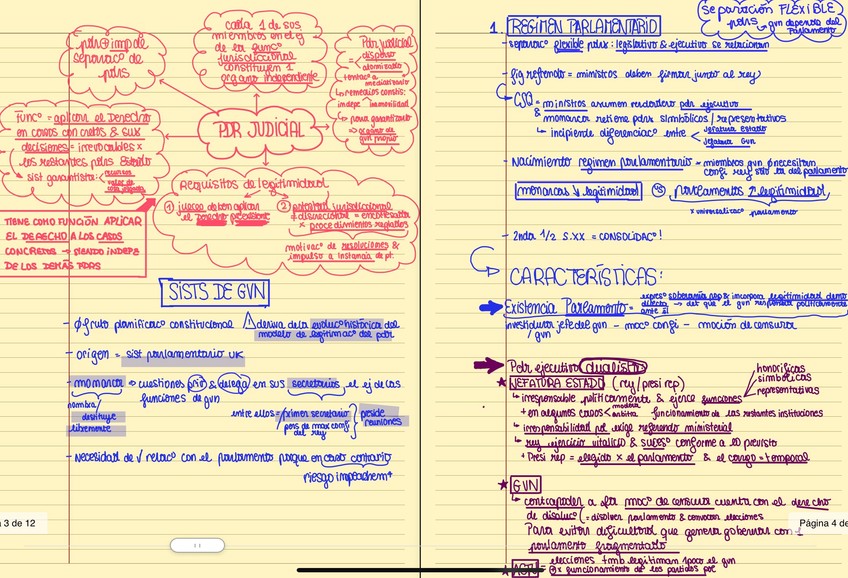 pdr imp de
separaco de
pdrs
cada 1 de sus
miembros en el ej
de la func
jurisdiccional
constituyen 1
órgano independiente
Pdr judicial
= disperso
atomizado
remedios constis:
indepe inamovilidad
para garantizarlo
órgano de
gvn propio
Func = aplicar el Derecho
en casos concretos & sus
decisiones = irrevocables x
los restantes pdrs Estado
sist garantista:
recursos
PDR JUDICIAL
Requisitos de legitimidad
① jueces deben aplicar
el Derecho preexistente
② potestad jurisdiccional
≠ discrecional =
x procedimientos reglados
motivac de resoluciones &
impulso a instancia de pt.
TIENE COMO FUNCIÓN APLICAR
EL DERECHO A LOS CASOS
CONCRETOS → SIENDO INDEPE
DE LOS DEMÁS PDRS
SISTS DE GVN
- Ø fruto planificaco constitucional ⚠ deriva de la evoluco histórica del
modelo de legitimac del pdr
- origen = sist parlamentario UK
- monarca → cuestiones priv & delega en sus secretarios, el ej de las
funciones de gvn
nombra/
destituye
libremente
entre ellos = primer secretario
pers de max confi
del rey
preside
reuniones
- Necesidad de √ relaco con el parlamento porque en caso contario
riesgo impeachem+
a 3 de 12
separación FLEXIBLE
pdrs → gvn depende del
Parlamento
1. RÉGIMEN PARLAMENTARIO
- separaco flexible pdrs: legislativo & ejecutivo se relacionan
- fig refrendo = ministros deben firmar junto al rey
CSQ = ministros asumen verdadero pdr ejecutivo
& monarca retiene pdrs simbólicos / representativos
↳ incipiente diferenciaco entre
jefatura estado
jefatura GVN
- Nacimiento régimen parlamentario = miembros gvn Ø necesitan
confi rey sólo la del parlamento
monarcas ↓ legitimidad VS parlamentos ↑ legitimidad
x universalizaco parlamento
- 2nda 1/2 S.XX = CONSOLIDACº!
CARACTERÍSTICAS:
Existencia Parlamento = expresº soberanía pop & incorpora legitimidad demo
directa → det que el gvn responda políticamente
ante él
investidura jefe del gvn - mocº confi - moción de censura
/ gvn
Pdr ejecutivo dualista
★ JEFATURA ESTADO (rey/presi rep)
honoríficas
simbólicas
representativas
↳ irresponsable políticamente & ejerce funciones
+ en algunos casos
modera
arbitra
funcionamiento de las restantes instituciones
↳ irresponsabilidad pol exige refrendo ministerial
↳ rey ejercicio vitalicio & sucesº conforme a lo previsto
+ Presi rep = elegido x el parlamento & el cargo = temporal
★ GVN
↳ contrapoder a sta mocº de censura cuenta con el derecho
de disolucº (= disolver parlamento & convocar elecciones
Para evitar dificultad que genera gobernar con 1
parlamento fragmentado
Página 4 de
elecciones tmb legitiman 1poco el gvn
x funcionamiento de los partidos pol